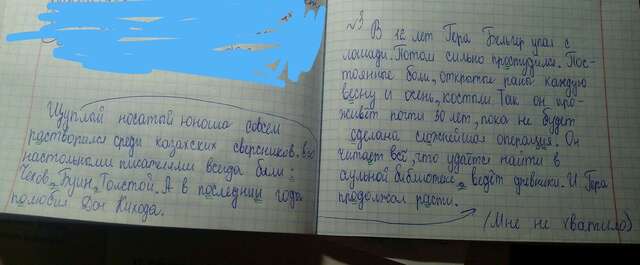 Щуплый носатый юноша совсем
растворился среди казахских сверсников. Его
настольными писателями всегда были:
Чехов, Бунин, Толстой. А в последнии годы
полюбил Дон Кихода.
√3
В 12 лет Гера Бельгер упал с
лошади. Потом сильно простудился. Пос-
тоянные боли, открытые раны каждую
весну и осень, костыли. Так он про-
живёт почти 30 лет, пока не будет
сделана сложнейшая операция. Он
читает всё, что удаётся найти в
аульной библиотеке, ведёт дневники. И Гера
продолжал расти.
(Мне не хватило)